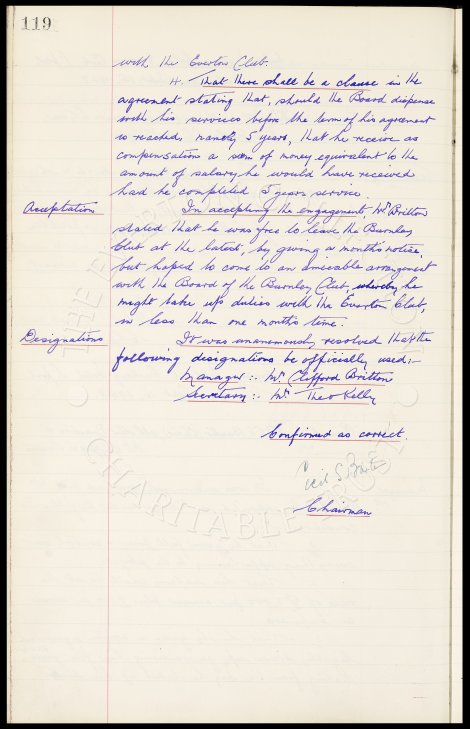 119
with the Everton Club.
4. That there shall be a clause in the
agreement stating that, should the Board dispense
with his services before the term of his agreement
is reached, namely 5 years, that he receive as
compensation a sum of money equivalent to the
amount of salary he would have received
had he completed 5 years service.
Acceptation
In accepting the engagement, Mr Britton
stated that he was free to leave the Burnley
Club at the latest, by giving a month's notice,
but hoped to come to an amicable arrangement
with the Board of the Burnley Club, whereby he
might take up duties with the Everton Club,
in less than one month's time.
Designations
It was unanimously resolved that the
following designations be officially used:-
Manager :- Mr Clifford Britton
Secretary :- Mr Theo Kelly
Confirmed as correct.
Cecil S.
Chairman
THE EVERTON
CHARITABLE TRUST